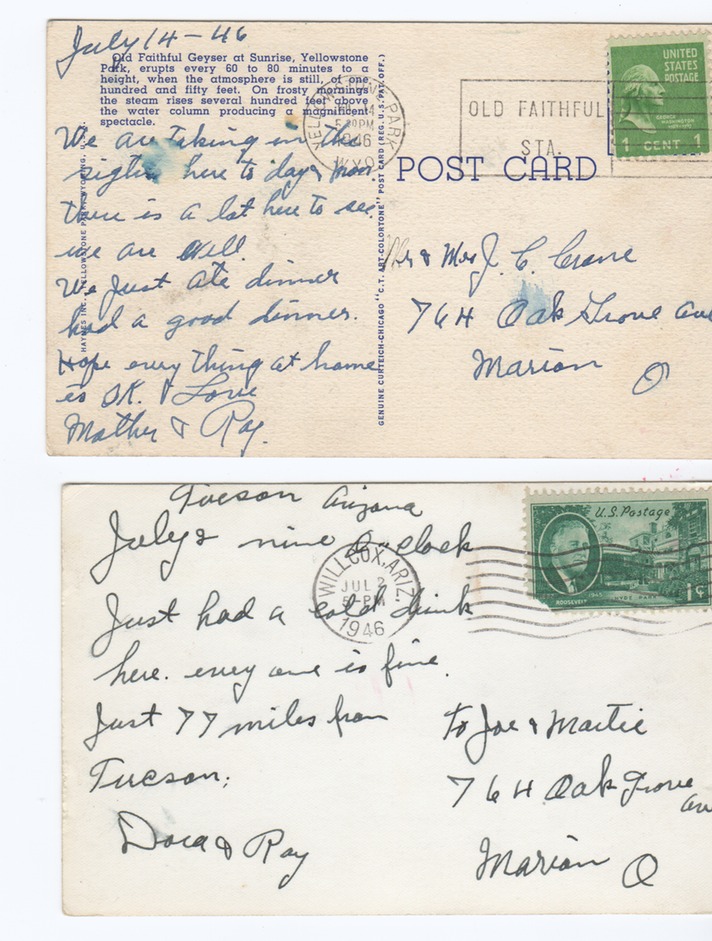 July 14-46
Old Faithful Geyser at Sunrise, Yellowstone
Park, erupts every 60 to 80 minutes to a
height, when the atmosphere is still, of one
hundred and fifty feet. On frosty mornings
the steam rises several hundred feet above
the water column producing a magnificent
spectacle.
We are taking in the
here to day
there is a lot here to see
we are well.
We Just ate dinner
had a good dinner.
Hope every thing at home
is OK. & Love
Mother & Ray.
HAYNES INC., YELLOWSTONE PARK, WYOMING, U.S.A.
GENUINE CURTEICH-CHICAGO "C.T. ART-COLORTONE" POST CARD (REG. U.S. PAT. OFF.)
PARK
1946
WYO
OLD FAITHFUL
STA.
UNITED
STATES
POSTAGE
GEORGE
WASHINGTON
1 CENT 1
POST CARD
Mr & Mrs J. C. Crane
764 Oak Grove Ave
Marion O
Tucson Arizona
July 2 nine O-clock
Just had a cold drink
here. every one is fine.
Just 77 miles from
Tucson.
Dora & Ray
WILLCOX, ARIZ.
JUL 2
PM
1946
U.S. Postage
ROOSEVELT
HYDE PARK
1¢
to Joe & Martie
764 Oak Grove
Ave
Marion O